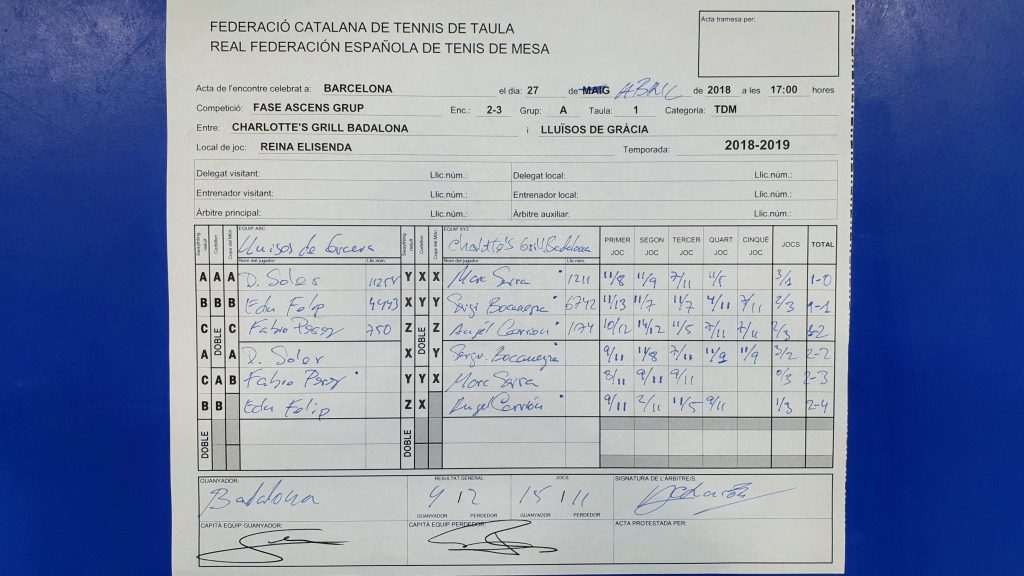 FEDERACIÓ CATALANA DE TENNIS DE TAULA
REAL FEDERACIÓN ESPAÑOLA DE TENIS DE MESA
Acta tramesa per:
Acta de l'encontre celebrat a: BARCELONA el dia: 27 de MAIG ABRIL de 2018 a les 17:00 hores
Competició: FASE ASCENS GRUP Enc.: 2-3 Grup: A Taula: 1 Categoria: TDM
Entre: CHARLOTTE'S GRILL BADALONA i LLUÏSOS DE GRÀCIA
Local de joc: REINA ELISENDA Temporada: 2018-2019
Delegat visitant: Llic.núm.: Delegat local: Llic.núm.:
Entrenador visitant: Llic.núm.: Entrenador local: Llic.núm.:
Àrbitre principal: Llic.núm.: Àrbitre auxiliar: Llic.núm.:
Swaythling reduït Corbillon Copa del Món EQUIP ABC Lluisos de Gracia Swaythling reduït Corbillon Copa del Món EQUIP XYZ Charlotte's Grill Badalona PRIMER JOC SEGON JOC TERCER JOC QUART JOC CINQUÈ JOC JOCS TOTAL
Nom del jugador Llic.núm. Nom del jugador Llic.núm.
A A A D. Soler Y X X Marc Serra 1211 11/8 11/9 7/11 11/5 3/1 1-0
B B B Edu Felip 4993 X Y Y Sergi Bocanegra 6742 11/13 11/7 11/7 4/11 7/11 2/3 1-1
C DOBLE C Fabio Perez 750 Z DOBLE Z Angel Carrión 1174 10/12 14/12 11/5 7/11 7/11 2/3 1-2
A A D. Soler X Y Sergi Bocanegra 9/11 11/8 7/11 11/9 11/9 3/2 2-2
C A B Fabio Perez Y Y X Marc Serra 8/11 9/11 9/11 0/3 2-3
B B Edu Felip Z X Angel Carrión 9/11 2/11 11/5 9/11 1/3 2-4
DOBLE DOBLE
GUANYADOR: Badalona RESULTAT GENERAL 4 / 2 JOCS 15 / 11 SIGNATURA DE L'ÀRBITRE/S:
GUANYADOR PERDEDOR GUANYADOR PERDEDOR
CAPITÀ EQUIP GUANYADOR: CAPITÀ EQUIP PERDEDOR: ACTA PROTESTADA PER: